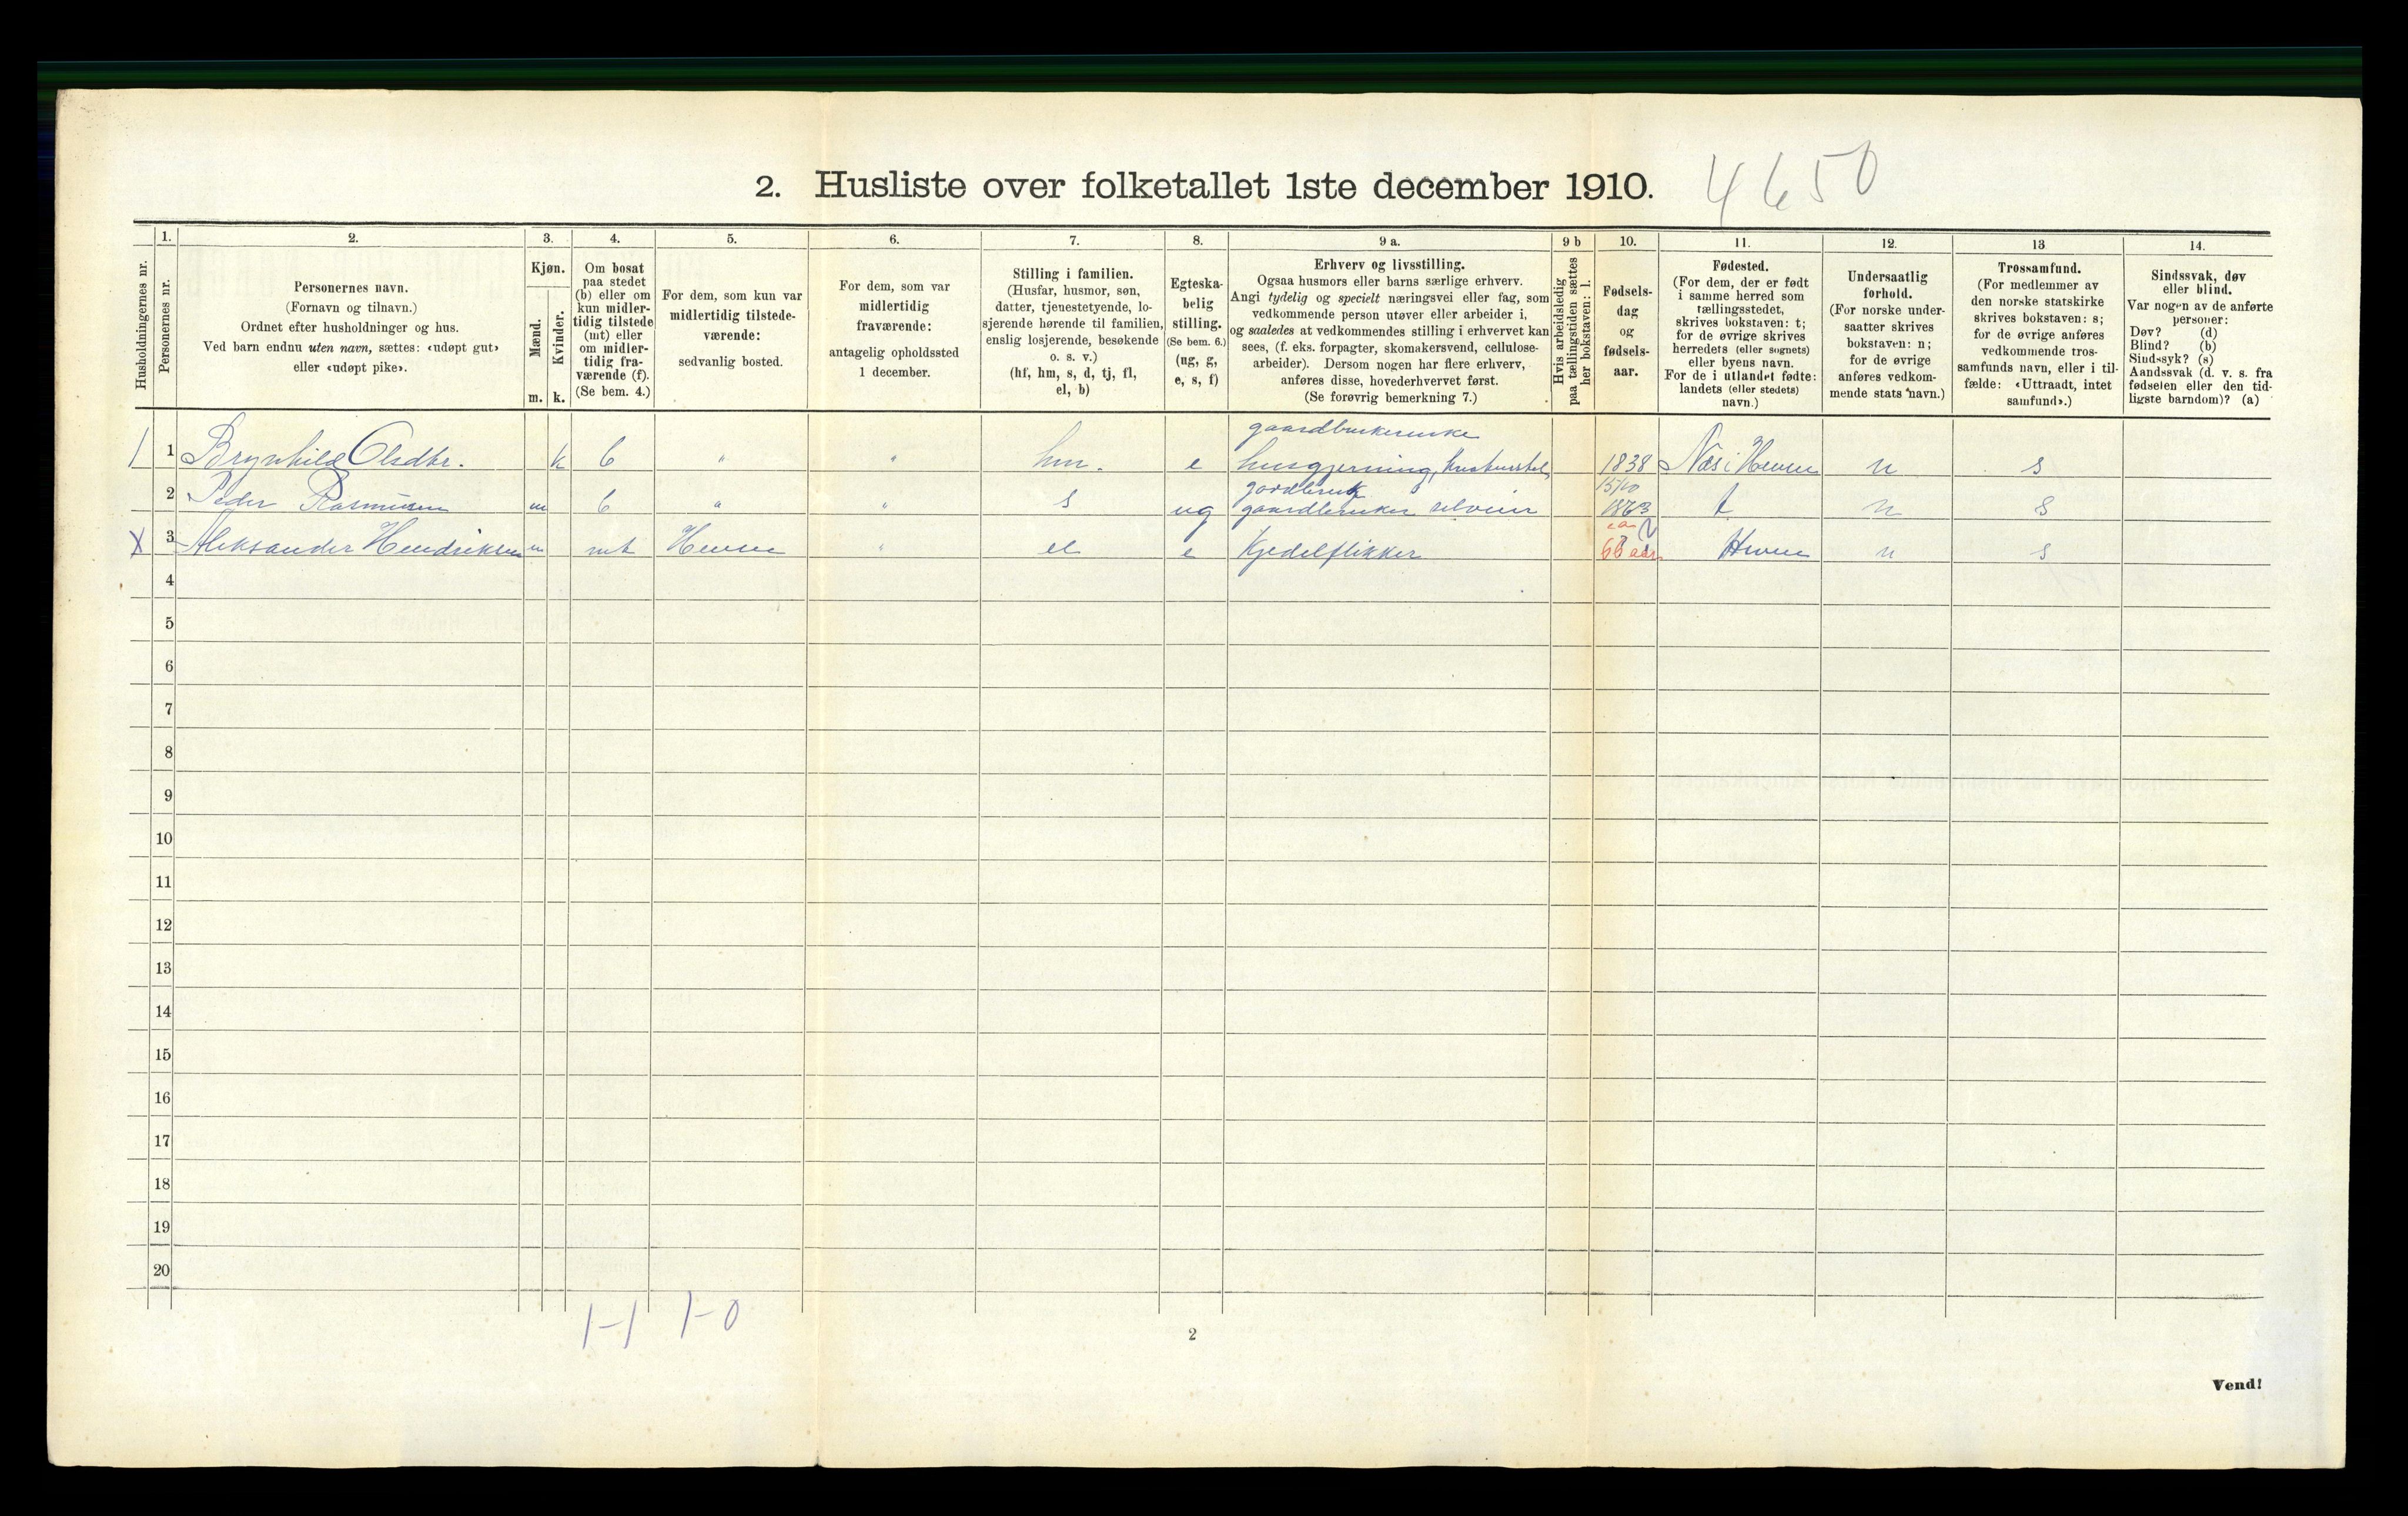 2. Husliste over folketallet 1ste december 1910.
4650
Husholdningernes nr.
1.
Personernes nr.
2.
Personernes navn.
(Fornavn og tilnavn.)
Ordnet efter husholdninger og hus.
Ved barn endnu uten navn, sættes: «udøpt gut»
eller «udøpt pike».
3.
Kjøn.
Mænd.
Kvinder.
m. k.
4.
Om bosat
paa stedet
(b) eller om
kun midler-
tidig tilstede
(mt) eller
om midler-
tidig fra-
værende (f).
(Se bem. 4.)
5.
For dem, som kun var
midlertidig tilstede-
værende:
sedvanlig bosted.
6.
For dem, som var
midlertidig
fraværende:
antagelig opholdssted
1 december.
7.
Stilling i familien.
(Husfar, husmor, søn,
datter, tjenestetyende, lo-
sjerende hørende til familien,
enslig losjerende, besøkende
o. s. v.)
(hf, hm, s, d, tj, fl,
el, b)
8.
Egteska-
belig
stilling.
(Se bem. 6.)
(ug, g,
e, s, f)
9 a.
Erhverv og livsstilling.
Ogsaa husmors eller barns særlige erhverv.
Angi tydelig og specielt næringsvei eller fag, som
vedkommende person utøver eller arbeider i,
og saaledes at vedkommendes stilling i erhvervet kan
sees, (f. eks. forpagter, skomakersvend, cellulose-
arbeider). Dersom nogen har flere erhverv,
anføres disse, hovederhvervet først.
(Se forøvrig bemerkning 7.)
9 b
Hvis arbeidsledig
paa tællingstiden sættes
her bokstaven: l.
10.
Fødsels-
dag
og
fødsels-
aar.
11.
Fødested.
(For dem, der er født
i samme herred som
tællingsstedet,
skrives bokstaven: t;
for de øvrige skrives
herredets (eller sognets)
eller byens navn.
For de i utlandet fødte:
landets (eller stedets)
navn.)
12.
Undersaatlig
forhold.
(For norske under-
saatter skrives
bokstaven: n;
for de øvrige
anføres vedkom-
mende stats navn.)
13
Trossamfund.
(For medlemmer av
den norske statskirke
skrives bokstaven: s;
for de øvrige anføres
vedkommende tros-
samfunds navn, eller i til-
fælde: «Uttraadt, intet
samfund».)
14.
Sindssvak, døv
eller blind.
Var nogen av de anførte
personer:
Døv? (d)
Blind? (b)
Sindssyk? (s)
Aandssvak (d. v. s. fra
fødselen eller den tid-
ligste barndom)? (a)
gaardbrukerenke
1 1 Brynhild Olsdtr. k b " " hm. e husgjerning, 1838 Næs i Hevne n s
gardbruk 15/10
2 Peder Rasmusen m b " " s ug gaardbruker selveier 1873 t n s
ca
X 3 Aleksander Hendriksen m mt Hevne " el e Kjedelflikker aar Hevne n s
4
5
6
7
8
9
10
11
12
13
14
15
16
17
18
19
20
1-1 1-0
2
Vend!